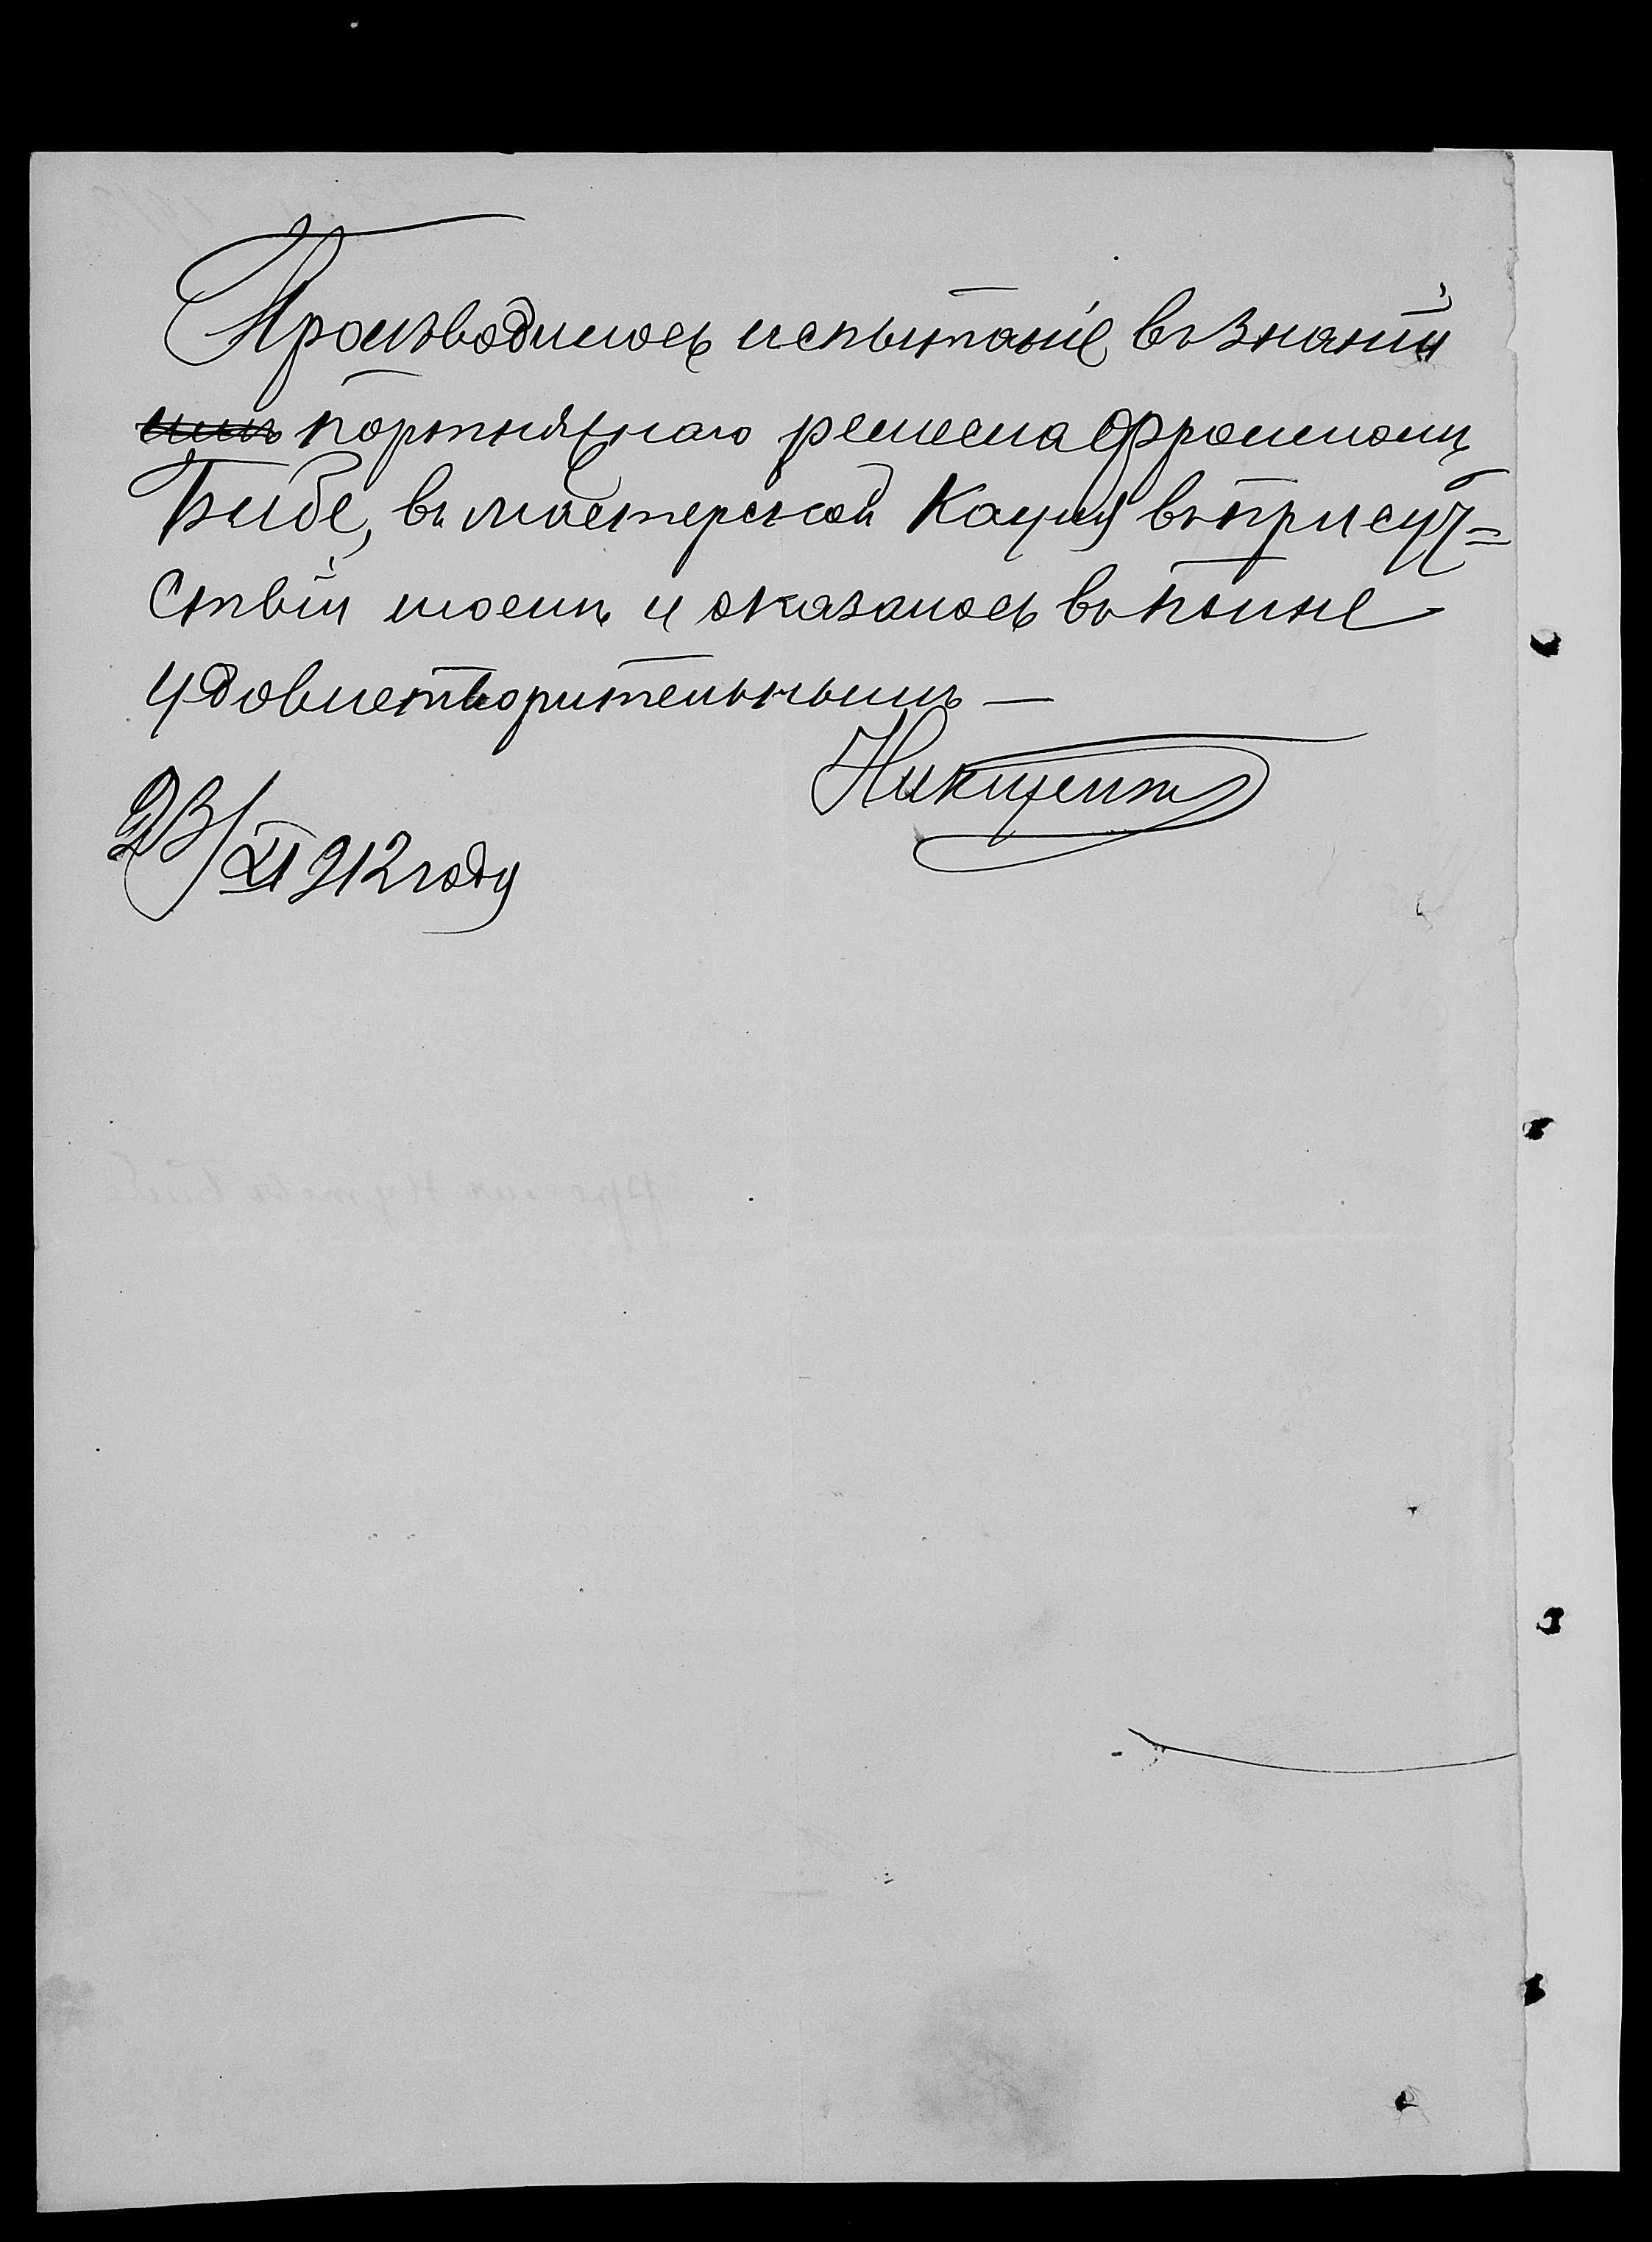 Произволилось испытаніе въ знаніи
портняжнаго ремесла Фроимомъ
Бибе, въ мастерской Кацмъ въ присут=
ствіи моемъ и оказалось вполне
удовлетворительнымъ —
23/XI 912 году